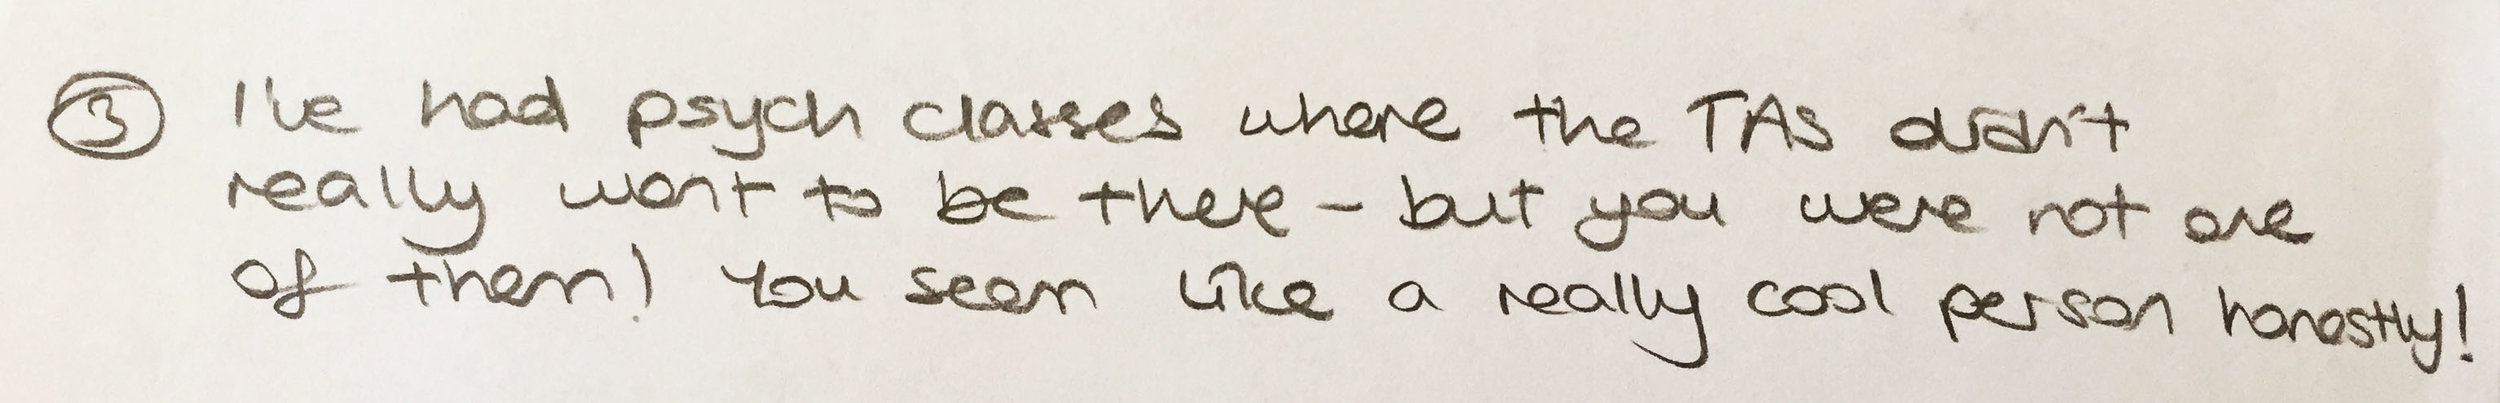 ③ I've had psych classes where the TAs didn't
really want to be there - but you were not one
of them! You seem like a really cool person honestly!